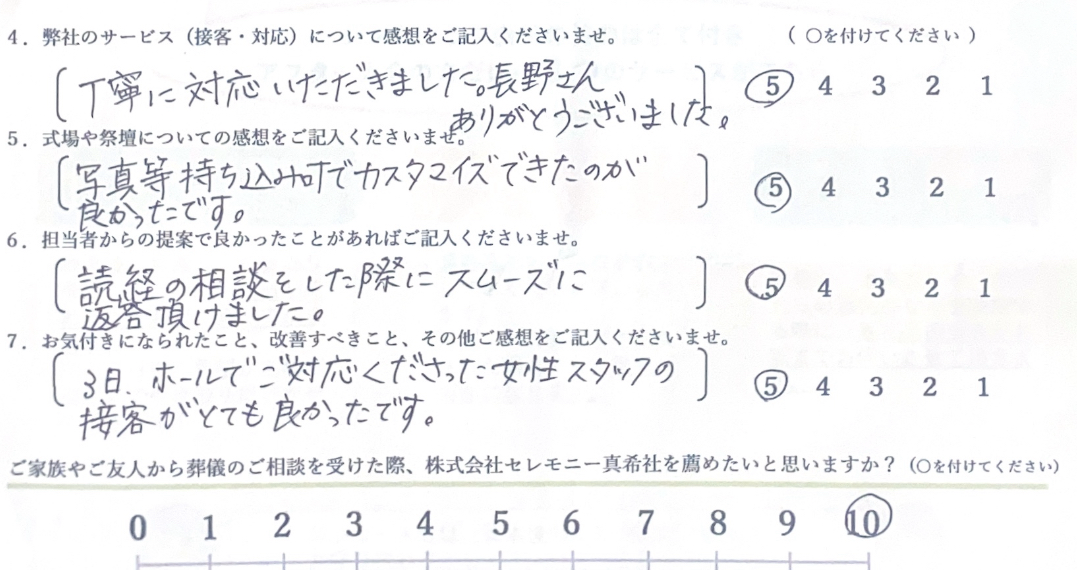 4．弊社のサービス（接客・対応）について感想をご記入くださいませ。　（ ○を付けてください ）
丁寧に対応いただきました。長野さん　5　4　3　2　1
ありがとうございました。
5．式場や祭壇についての感想をご記入くださいませ。
写真等持ち込み可でカスタマイズできたのが　5　4　3　2　1
良かったです。
6．担当者からの提案で良かったことがあればご記入くださいませ。
読経の相談をした際にスムーズに　5　4　3　2　1
返答頂けました。
7．お気付きになられたこと、改善すべきこと、その他ご感想をご記入くださいませ。
3日、ホールでご対応くださった女性スタッフの　5　4　3　2　1
接客がとても良かったです。
ご家族やご友人から葬儀のご相談を受けた際、株式会社セレモニー真希社を薦めたいと思いますか？（○を付けてください）
0　1　2　3　4　5　6　7　8　9　10